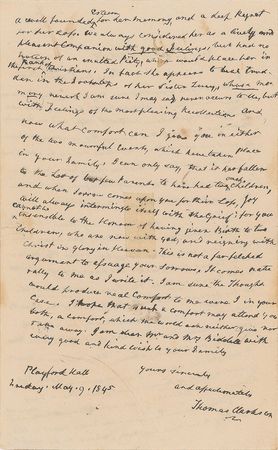 esteem
a well founded for her memory, and a deep Regret
for her loss. We always considered her as a lively and
pleasant Companion with good feelings, but had no
notion of an exalted Piety, which would place her in
the first
In fact she appears to have trod-
den in the footsteps of her Sister Lucy, whose me-
mory never, I am sure I may say never occurs to me, but
with feelings of the most pleasing Recollections and
now what comfort can I give you in either
of the two mournful Events, which have taken Place
in your Family. I can only say, that it has fallen
to the Lot of but few Parents to have had such Children,
and when Sorrow comes upon you for their Loss, Joy
will always intermingle itself with the Grief; for you
cannot be
insensible to the Honour of having given Birth to two
Children, who are now with God, and reigning with
Christ in glory in Heaven. This is not a far fetched
argument to assuage your Sorrows. It comes natu-
rally to me as I write it. I am sure the Thought
would produce real Comfort to me were I in your
Case. I hope that such a comfort may attend you
both, a comfort, which the world can neither give nor
take away. I am dear Mr and Mrs Biddell with
every good and kind wish to your Family
yours sincerely
and affectionately
Thomas Clarkson
Playford Hall
Tuesday, May, 9, 1845